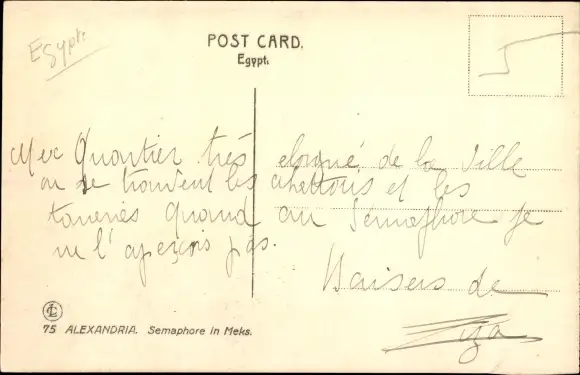 Egypt.
POST CARD.
Egypt.
5
Mex Quartier très éloigné de la Ville
ou se trouvent les et les
quand au Sémaphore je
ne l'aperçois pas.
Baisers de
LC
75 ALEXANDRIA. Semaphore in Meks.